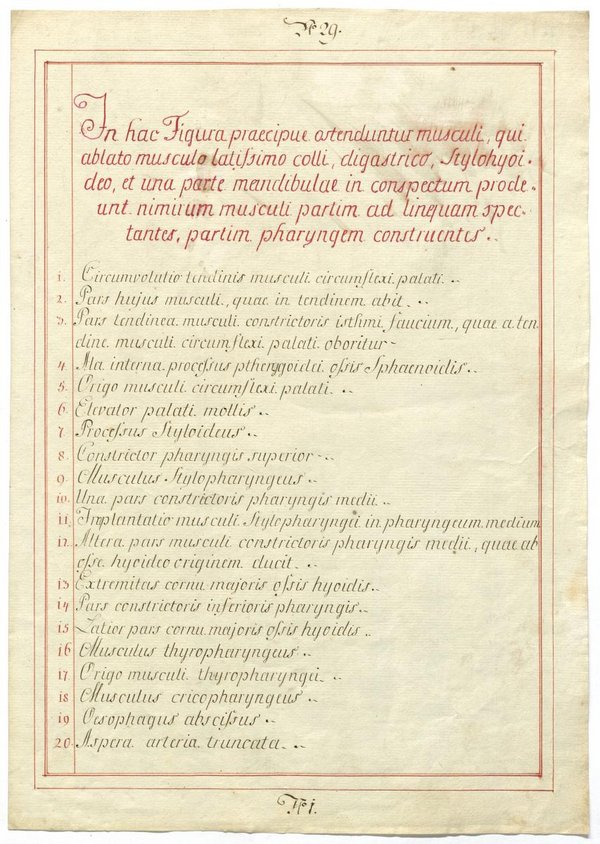 No 29.
In hac Figura praecipue ostenduntur musculi, qui
ablato musculo latissimo colli, digastrico, Stylohyoi-
deo, et una parte mandibulae in conspectum prode-
unt. nimirum musculi partim ad linguam spec-
tantes, partim pharyngem construentes.
1. Circumvolatio tendinis musculi circumflexi palati.
2. Pars hujus musculi, quae in tendinem abit.
3. Pars tendinea musculi constrictoris isthmi faucium, quae a ten
dine musculi circumflexi palati oboritur
4. Ala interna processus ptherygoidei ossis Sphaenoidis.
5. Origo musculi circumflexi palati.
6. Elevator palati mollis.
7. Processus Styloideus.
8. Constrictor pharyngis superior
9. Musculus Stylopharyngeus.
10. Una pars constrictoris pharyngis medii.
11. Implantatio musculi Stylopharyngei in pharyngeum medium
12. Altera pars musculi constrictoris pharyngis medii, quae ab
osse hyoideo originem ducit.
13. Extremitas cornu majoris ossis hyoidis.
14. Pars constrictoris inferioris pharyngis.
15. Latior pars cornu majoris ossis hyoidis.
16. Musculus thyropharyngeus.
17. Origo musculi thyropharyngei.
18. Musculus cricopharyngeus.
19. Oesophagus abscissus.
20. Aspera arteria truncata.
No 1.